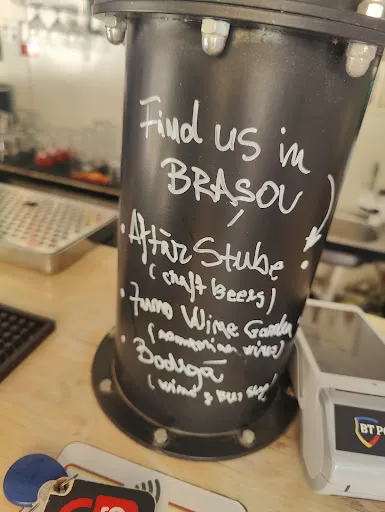 Find us in
BRAȘOV
• After Stube
(craft Beers)
• Forno Wine Garden
(romanian wines)
• Bodega
(wine &
BT PO